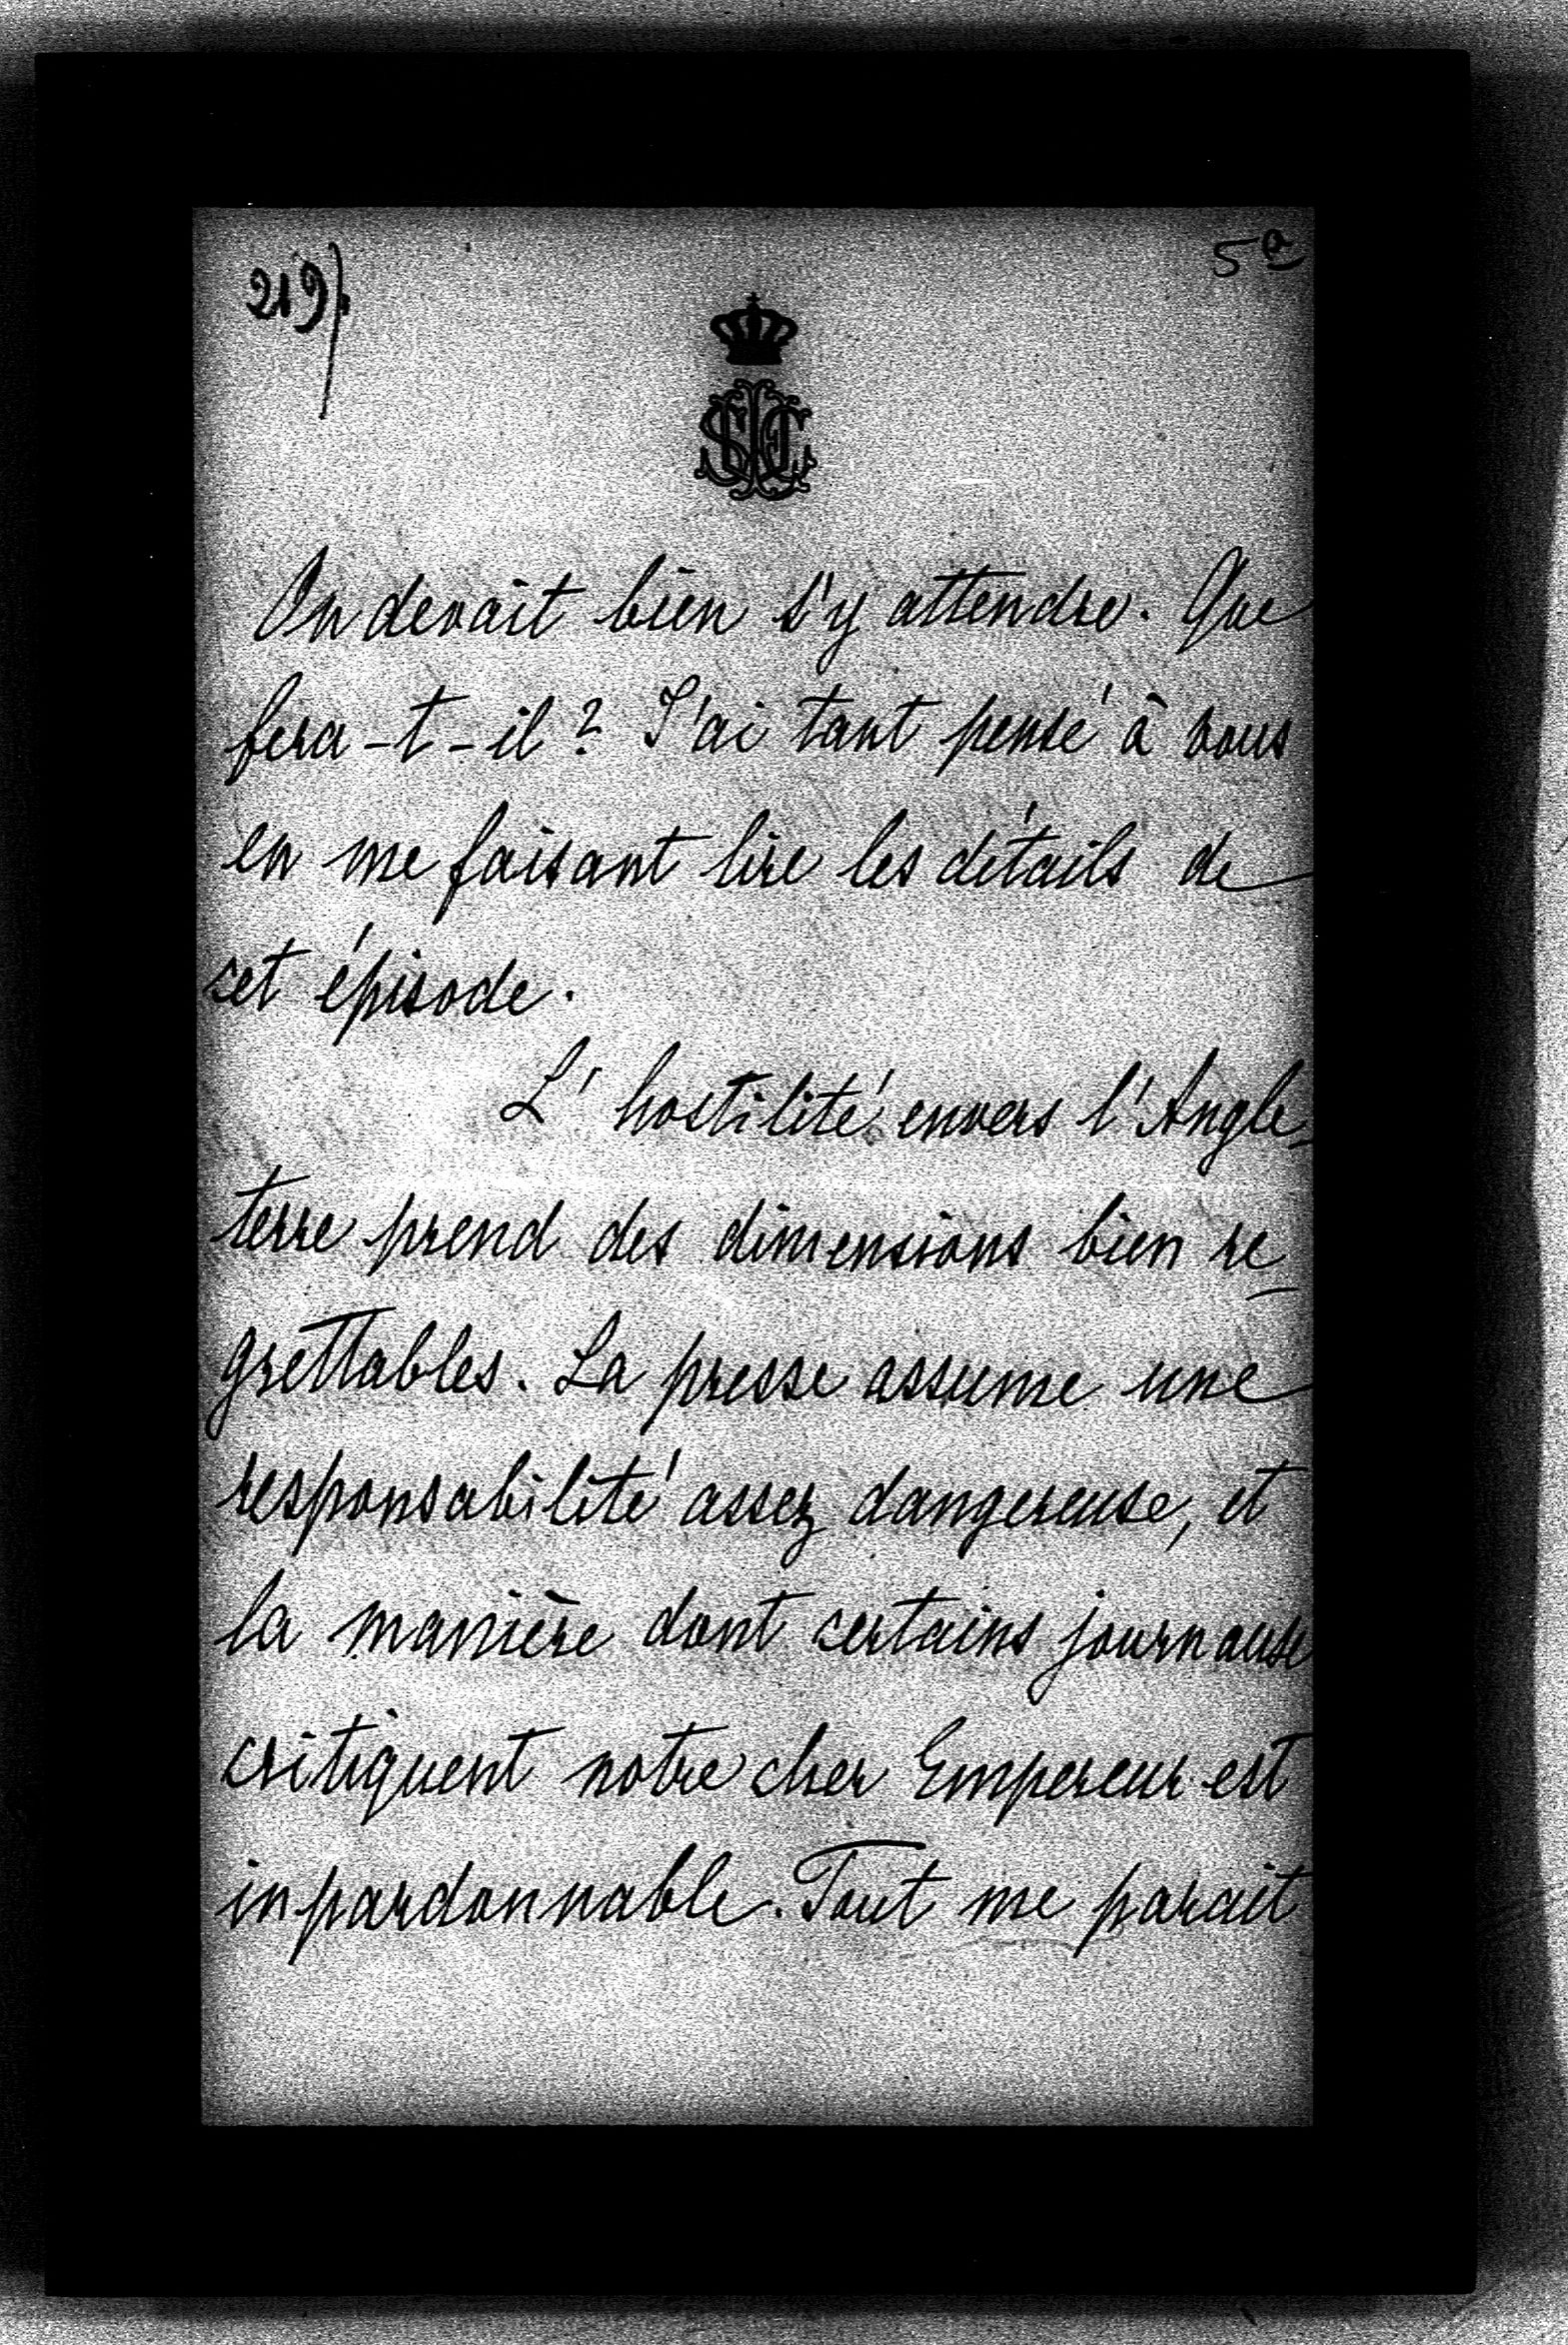 219/.
5a
On devait bien s'y attendre. Que
fera-t-il? J'ai tant pensé à vous
en me faisant lire les détails de
cet épisode.
L'hostilité envers l'Angle-
terre prend des dimensions bien re-
grettables. La presse assume une
responsabilité assez dangereuse, et
la manière dont certains journaux
critiquent notre cher Empereur est
inpardonnable. Tout me parait